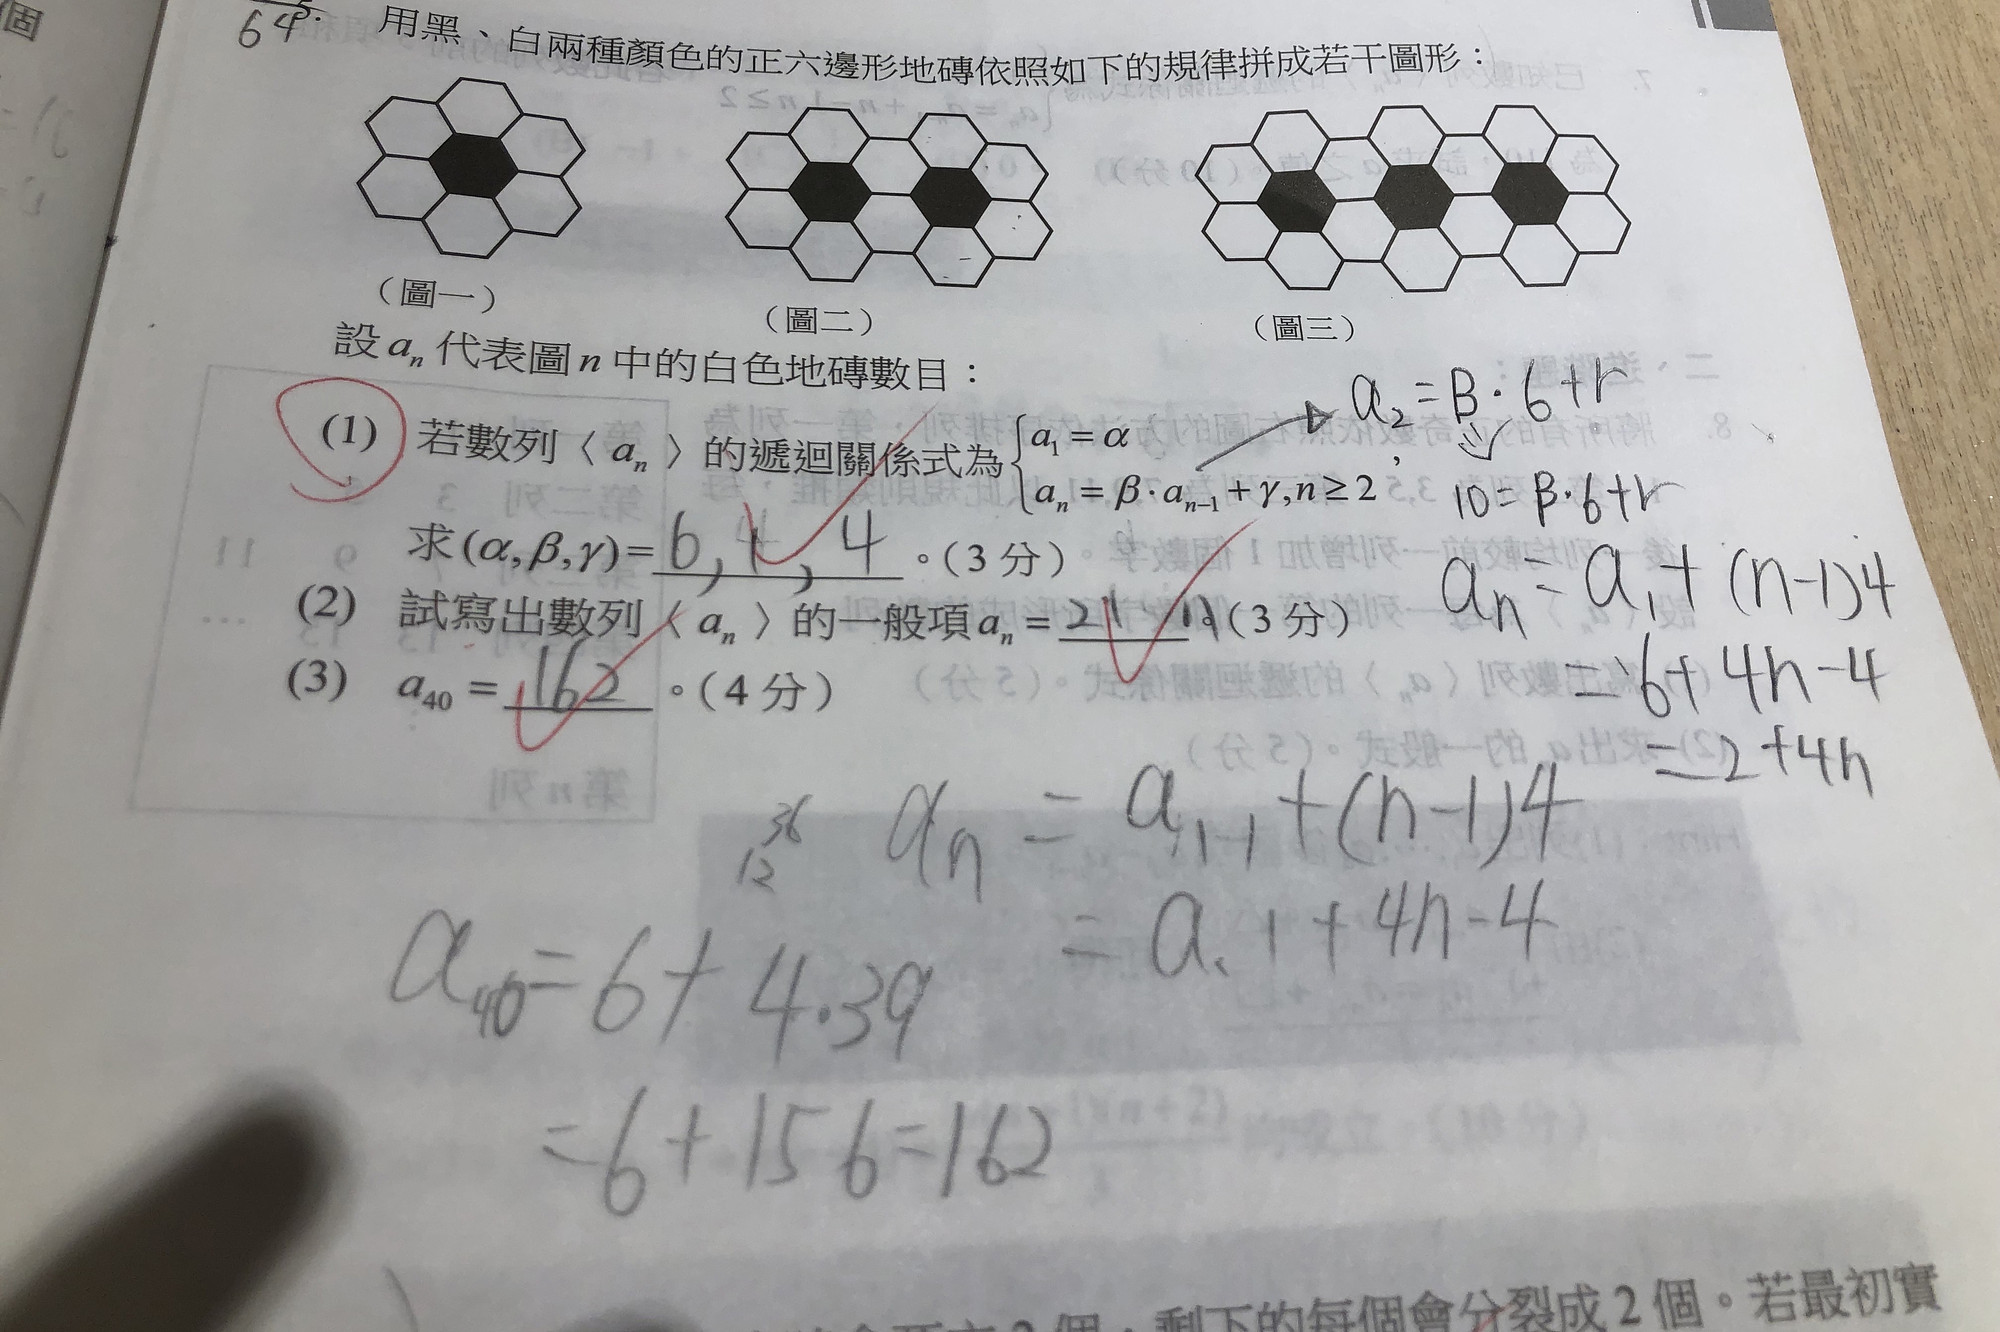 個
64
5.
用黑、白兩種顏色的正六邊形地磚依照如下的規律拼成若干圖形：
（圖一）
（圖二）
（圖三）
設 aₙ 代表圖 n 中的白色地磚數目：
(1) 若數列〈 aₙ 〉的遞迴關係式為 { a₁ = α
aₙ = β · aₙ₋₁ + γ, n ≥ 2 ,
求 (α, β, γ) = 6, 1, 4 。（3 分）
(2) 試寫出數列〈 aₙ 〉的一般項 aₙ = 。（3 分）
(3) a₄₀ = 162 。（4 分）
a₂ = β · 6 + r
10 = β · 6 + r
aₙ = a₁ + (n-1)4
= 6 + 4n - 4
= 2 + 4n
36
12
aₙ = a₁₋₁ + (n-1)4
= a. 1 + 4n - 4
a₄₀ = 6 + 4.39
= 6 + 156 = 162
2 個，剩下的每個會分裂成 2 個。若最初實